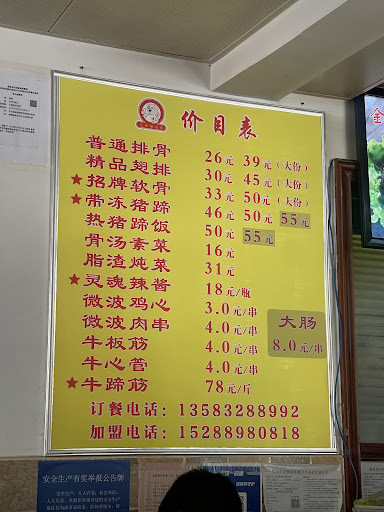 价目表
普通排骨 26元 39元(大份)
精品翅排 30元 45元(大份)
★招牌软骨 33元 50元(大份)
★带冻猪蹄 46元 50元 55元
热猪蹄饭 50元 55元
骨汤素菜 16元
脂渣炖菜 31元
★灵魂辣酱 18元/瓶
微波鸡心 3.0元/串
微波肉串 4.0元/串
牛板筋 4.0元/串
牛心管 4.0元/串
★牛蹄筋 78元/斤
大肠
8.0元/串
订餐电话：13583288992
加盟电话：15288980818
安全生产有奖举报公告牌